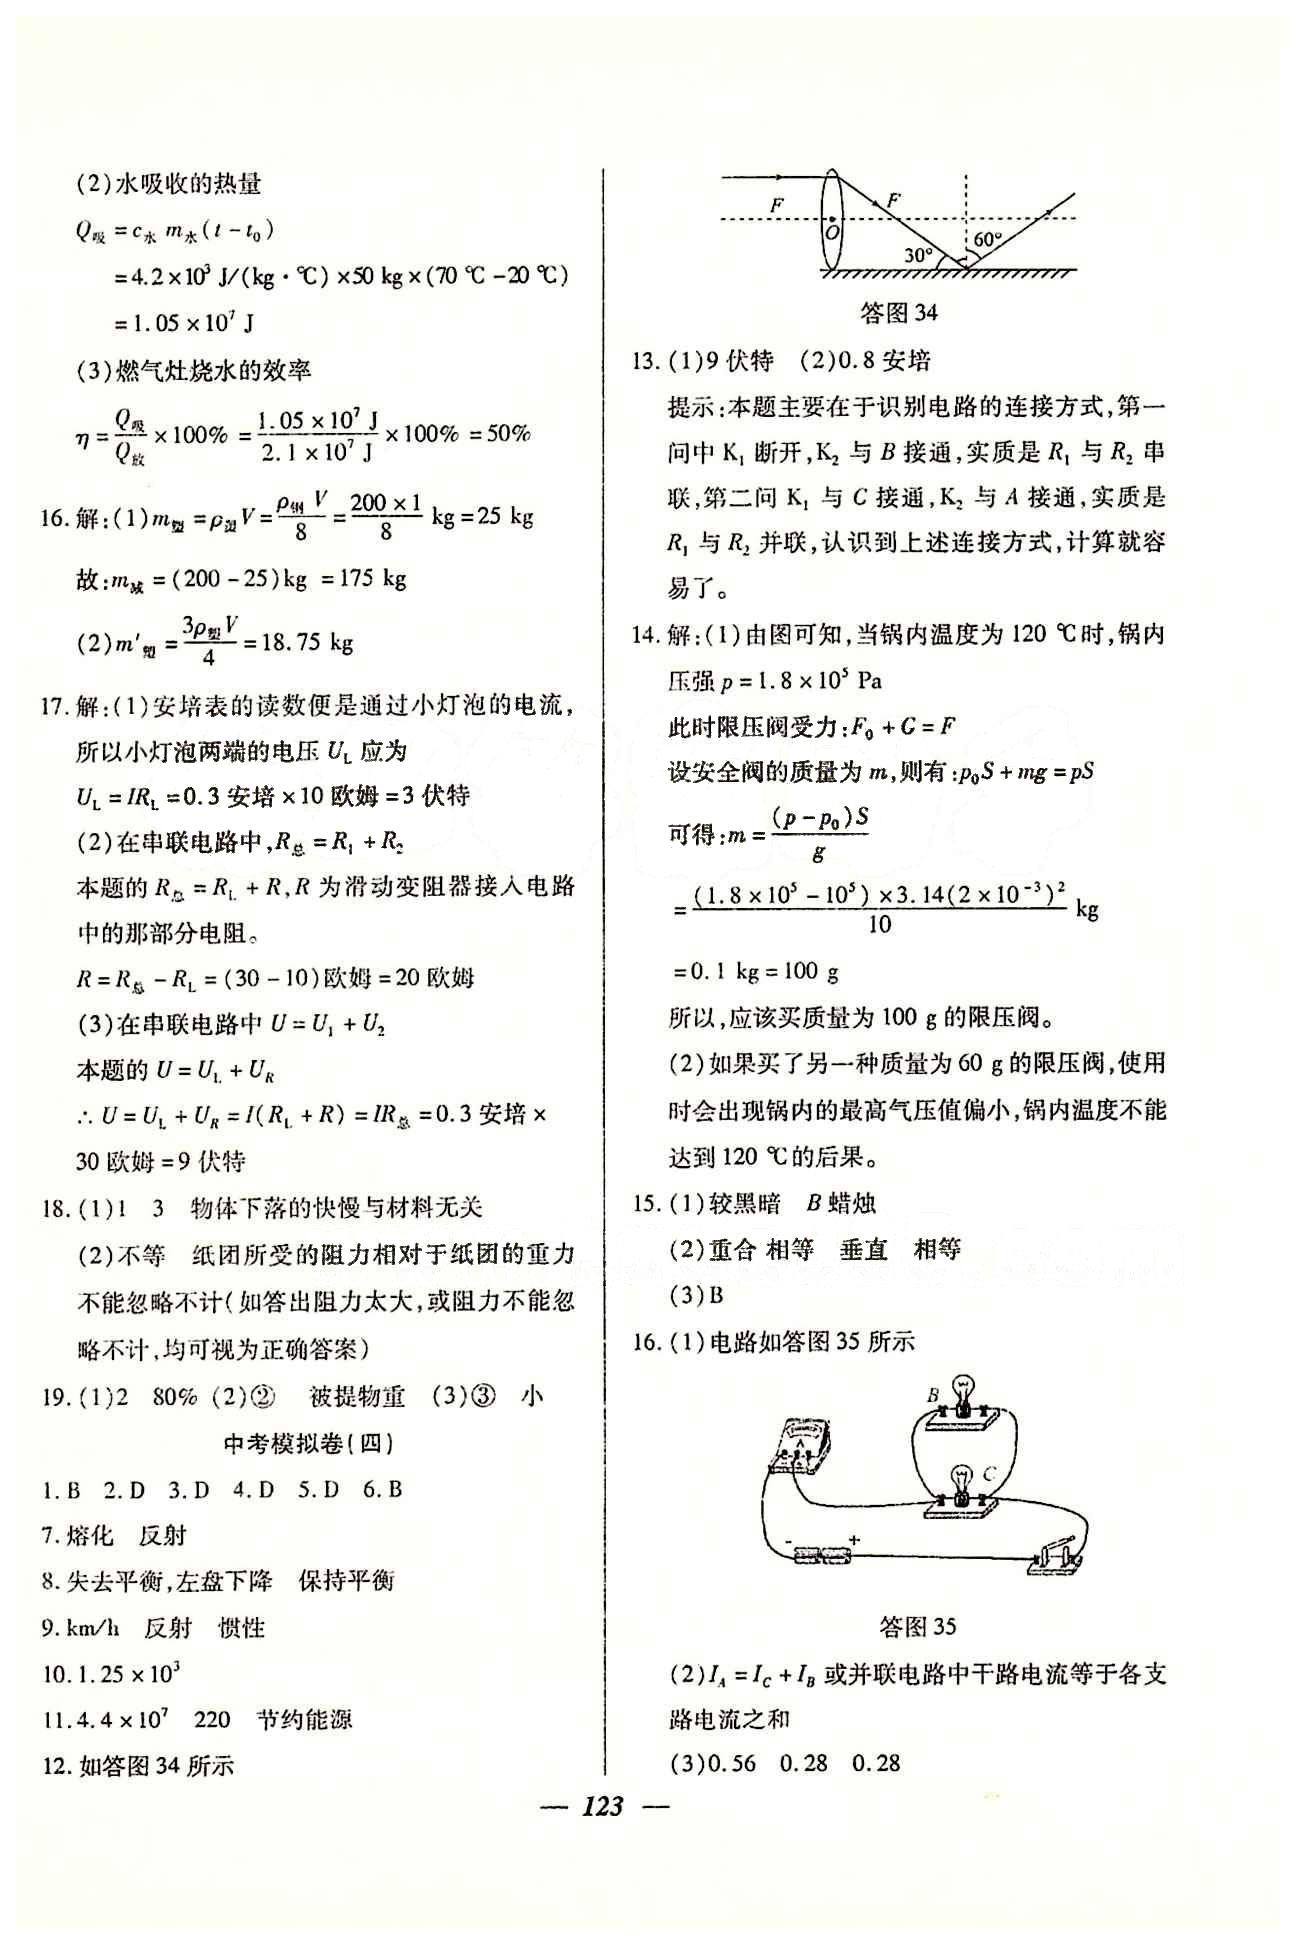 (2)水吸收的热量
Q吸 = c水 m水(t - t₀)
= 4.2×10³ J/(kg·℃)×50 kg×(70 ℃-20 ℃)
= 1.05×10⁷ J
(3)燃气灶烧水的效率
η = Q吸/Q放 ×100% = 1.05×10⁷ J/2.1×10⁷ J ×100% = 50%
16. 解:(1)m塑 = ρ塑V = ρ钢V/8 = 200×1/8 kg = 25 kg
故:m减 = (200-25)kg = 175 kg
(2)m′塑 = 3ρ塑V/4 = 18.75 kg
17. 解:(1)安培表的读数便是通过小灯泡的电流,
所以小灯泡两端的电压 U_L 应为
U_L = IR_L = 0.3 安培×10 欧姆 = 3 伏特
(2)在串联电路中,R总 = R₁ + R₂
本题的 R总 = R_L + R,R 为滑动变阻器接入电路
中的那部分电阻。
R = R总 - R_L = (30-10)欧姆 = 20 欧姆
(3)在串联电路中 U = U₁ + U₂
本题的 U = U_L + U_R
∴ U = U_L + U_R = I(R_L + R) = IR总 = 0.3 安培×
30 欧姆 = 9 伏特
18. (1)1 3 物体下落的快慢与材料无关
(2)不等 纸团所受的阻力相对于纸团的重力
不能忽略不计(如答出阻力太大,或阻力不能忽
略不计,均可视为正确答案)
19. (1)2 80% (2)② 被提物重 (3)③ 小
中考模拟卷(四)
1. B 2. D 3. D 4. D 5. D 6. B
7. 熔化 反射
8. 失去平衡,左盘下降 保持平衡
9. km/h 反射 惯性
10. 1.25×10³
11. 4.4×10⁷ 220 节约能源
12. 如答图 34 所示
F F O 30° 60°
答图 34
13. (1)9 伏特 (2)0.8 安培
提示:本题主要在于识别电路的连接方式,第一
问中 K₁ 断开,K₂ 与 B 接通,实质是 R₁ 与 R₂ 串
联,第二问 K₁ 与 C 接通,K₂ 与 A 接通,实质是
R₁ 与 R₂ 并联,认识到上述连接方式,计算就容
易了。
14. 解:(1)由图可知,当锅内温度为 120 ℃时,锅内
压强 p = 1.8×10⁵ Pa
此时限压阀受力:F₀ + G = F
设安全阀的质量为 m,则有:p₀S + mg = pS
可得:m = (p-p₀)S/g
= (1.8×10⁵-10⁵)×3.14(2×10⁻³)²/10 kg
= 0.1 kg = 100 g
所以,应该买质量为 100 g 的限压阀。
(2)如果买了另一种质量为 60 g 的限压阀,使用
时会出现锅内的最高气压值偏小,锅内温度不能
达到 120 ℃的后果。
15. (1)较黑暗 B 蜡烛
(2)重合 相等 垂直 相等
(3)B
16. (1)电路如答图 35 所示
B
A
C
- +
答图 35
(2)I_A = I_C + I_B 或并联电路中干路电流等于各支
路电流之和
(3)0.56 0.28 0.28
— 123 —